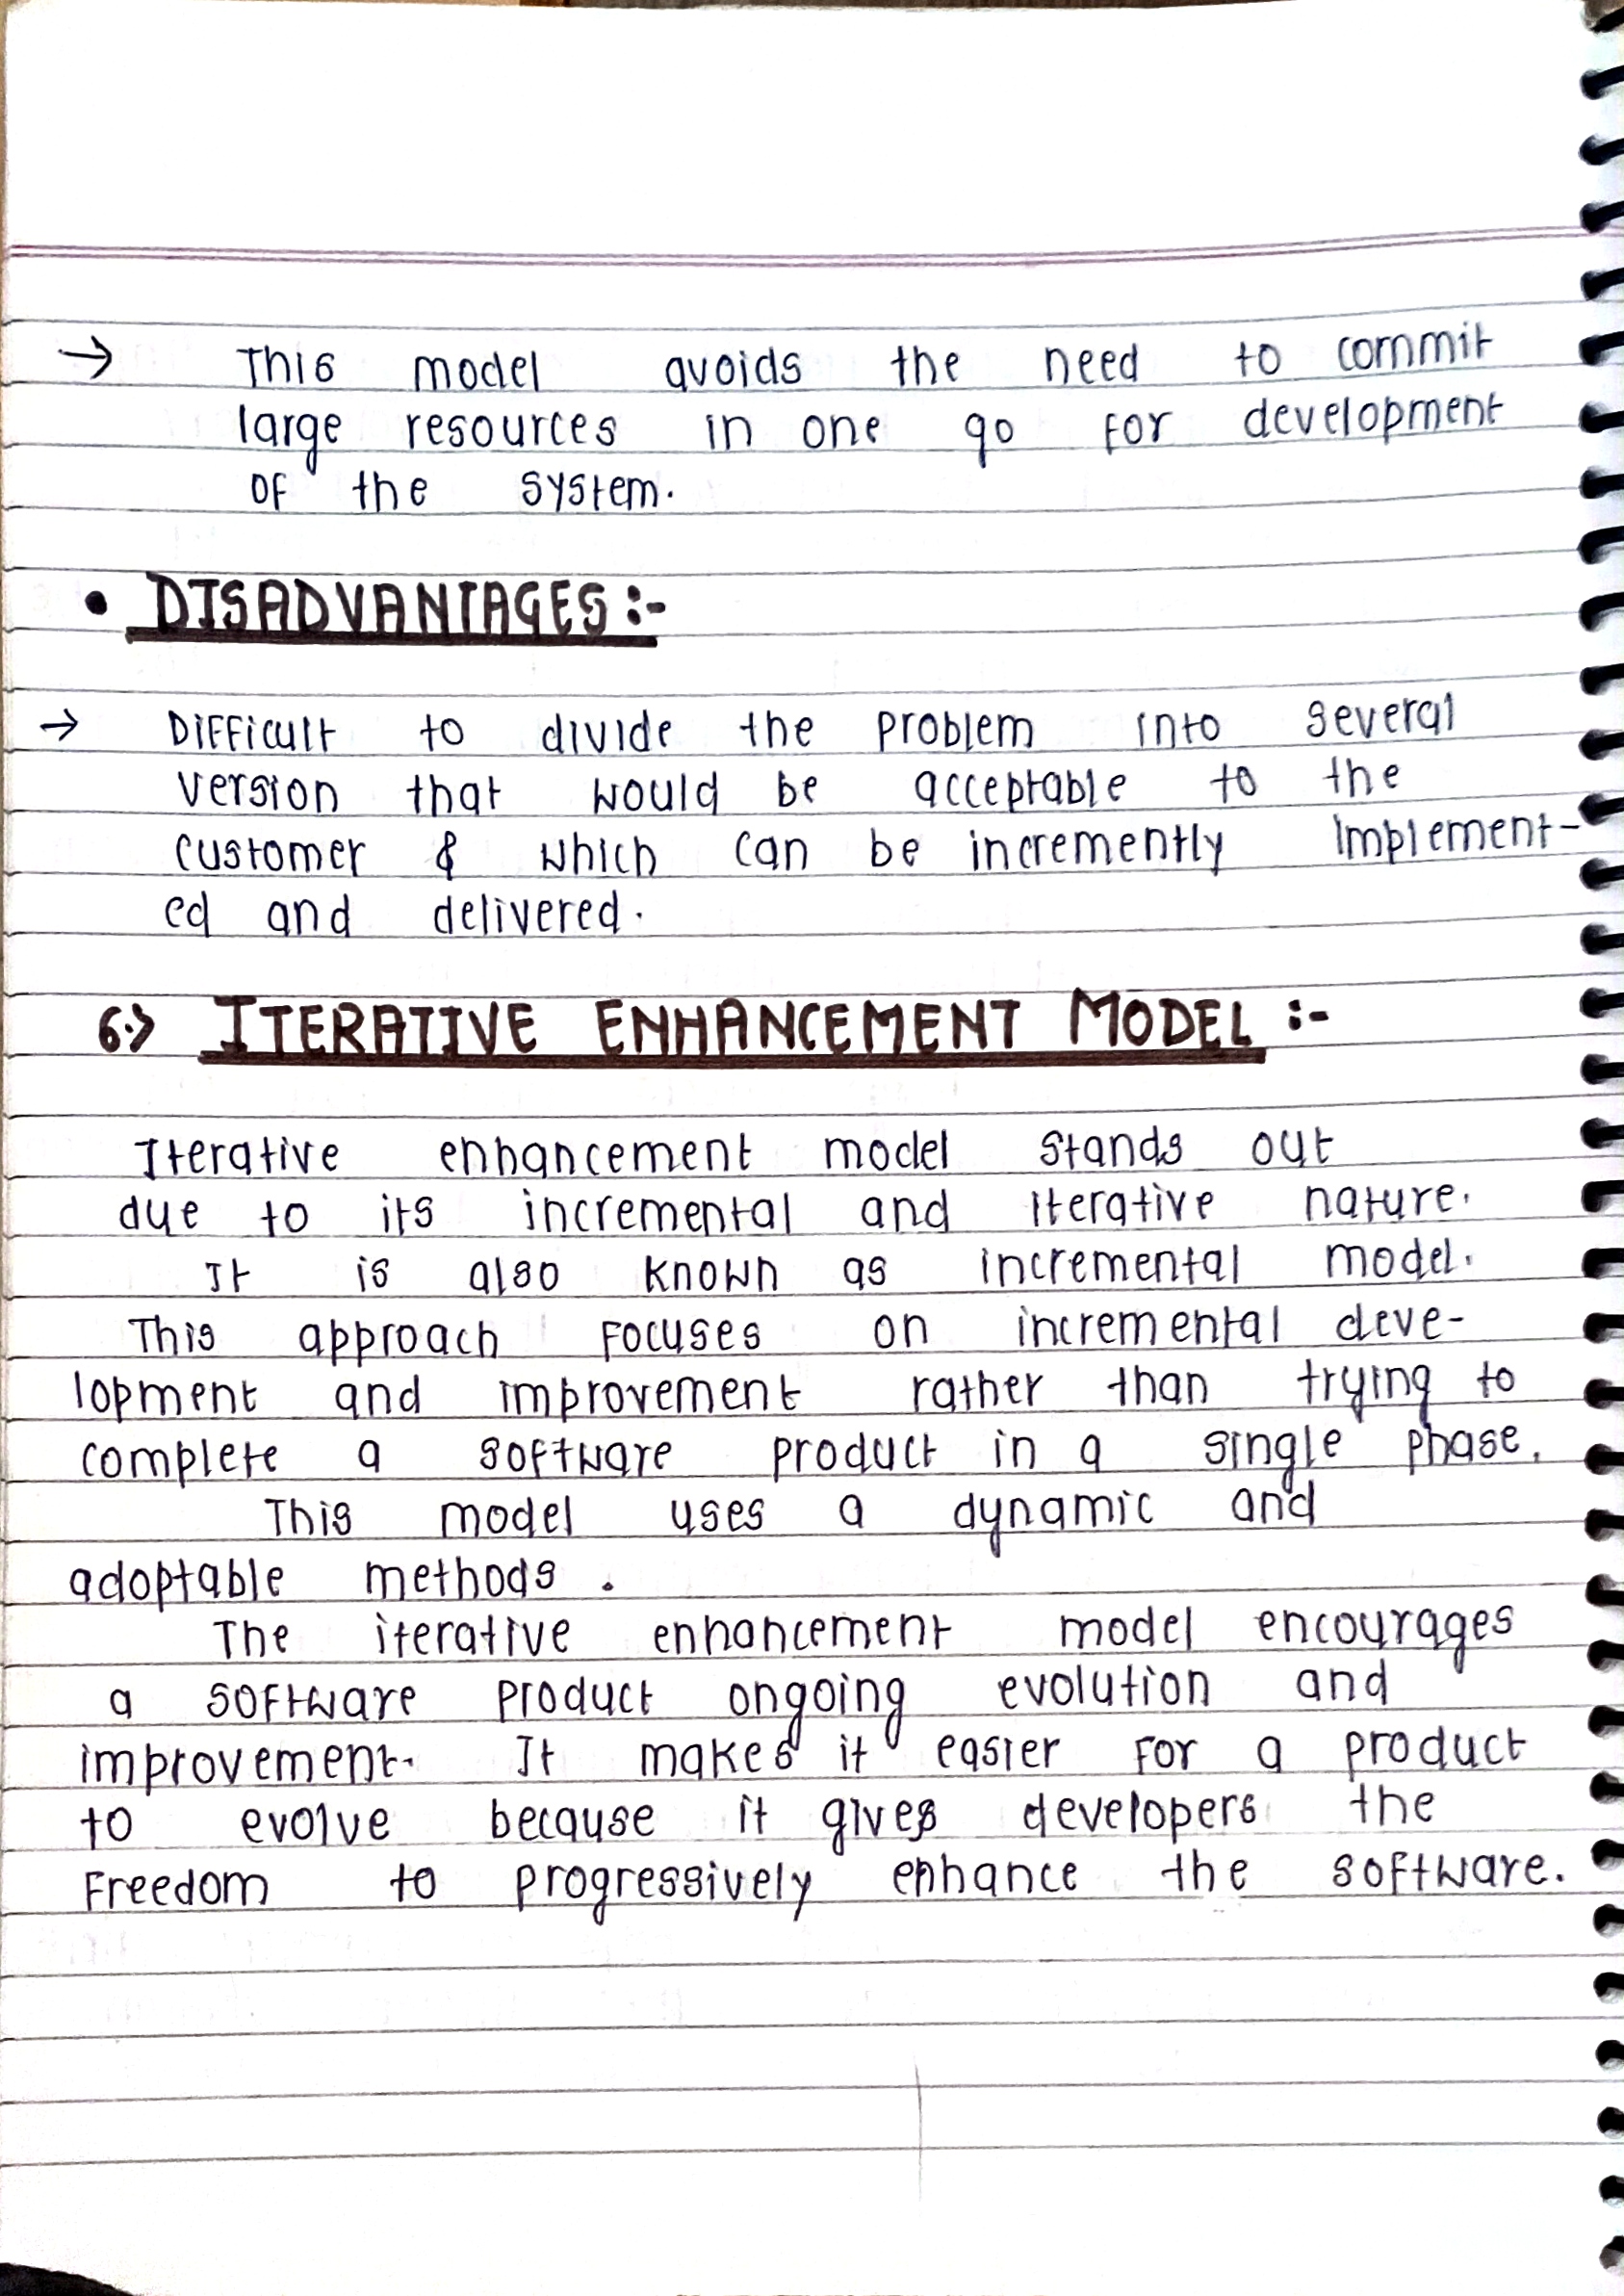 → This model avoids the need to commit
large resources in one go for development
of the system.
• DISADVANTAGES :-
→ Difficult to divide the problem into several
version that would be acceptable to the
customer & which can be incremently implement-
ed and delivered.
6.> ITERATIVE ENHANCEMENT MODEL :-
Iterative enhancement model stands out
due to its incremental and iterative nature.
It is also known as incremental model.
This approach focuses on incremental deve-
lopment and improvement rather than trying to
complete a software product in a single phase.
This model uses a dynamic and
adoptable methods.
The iterative enhancement model encourages
a software product ongoing evolution and
improvement. It makes it easier for a product
to evolve because it gives developers the
freedom to progressively enhance the software.